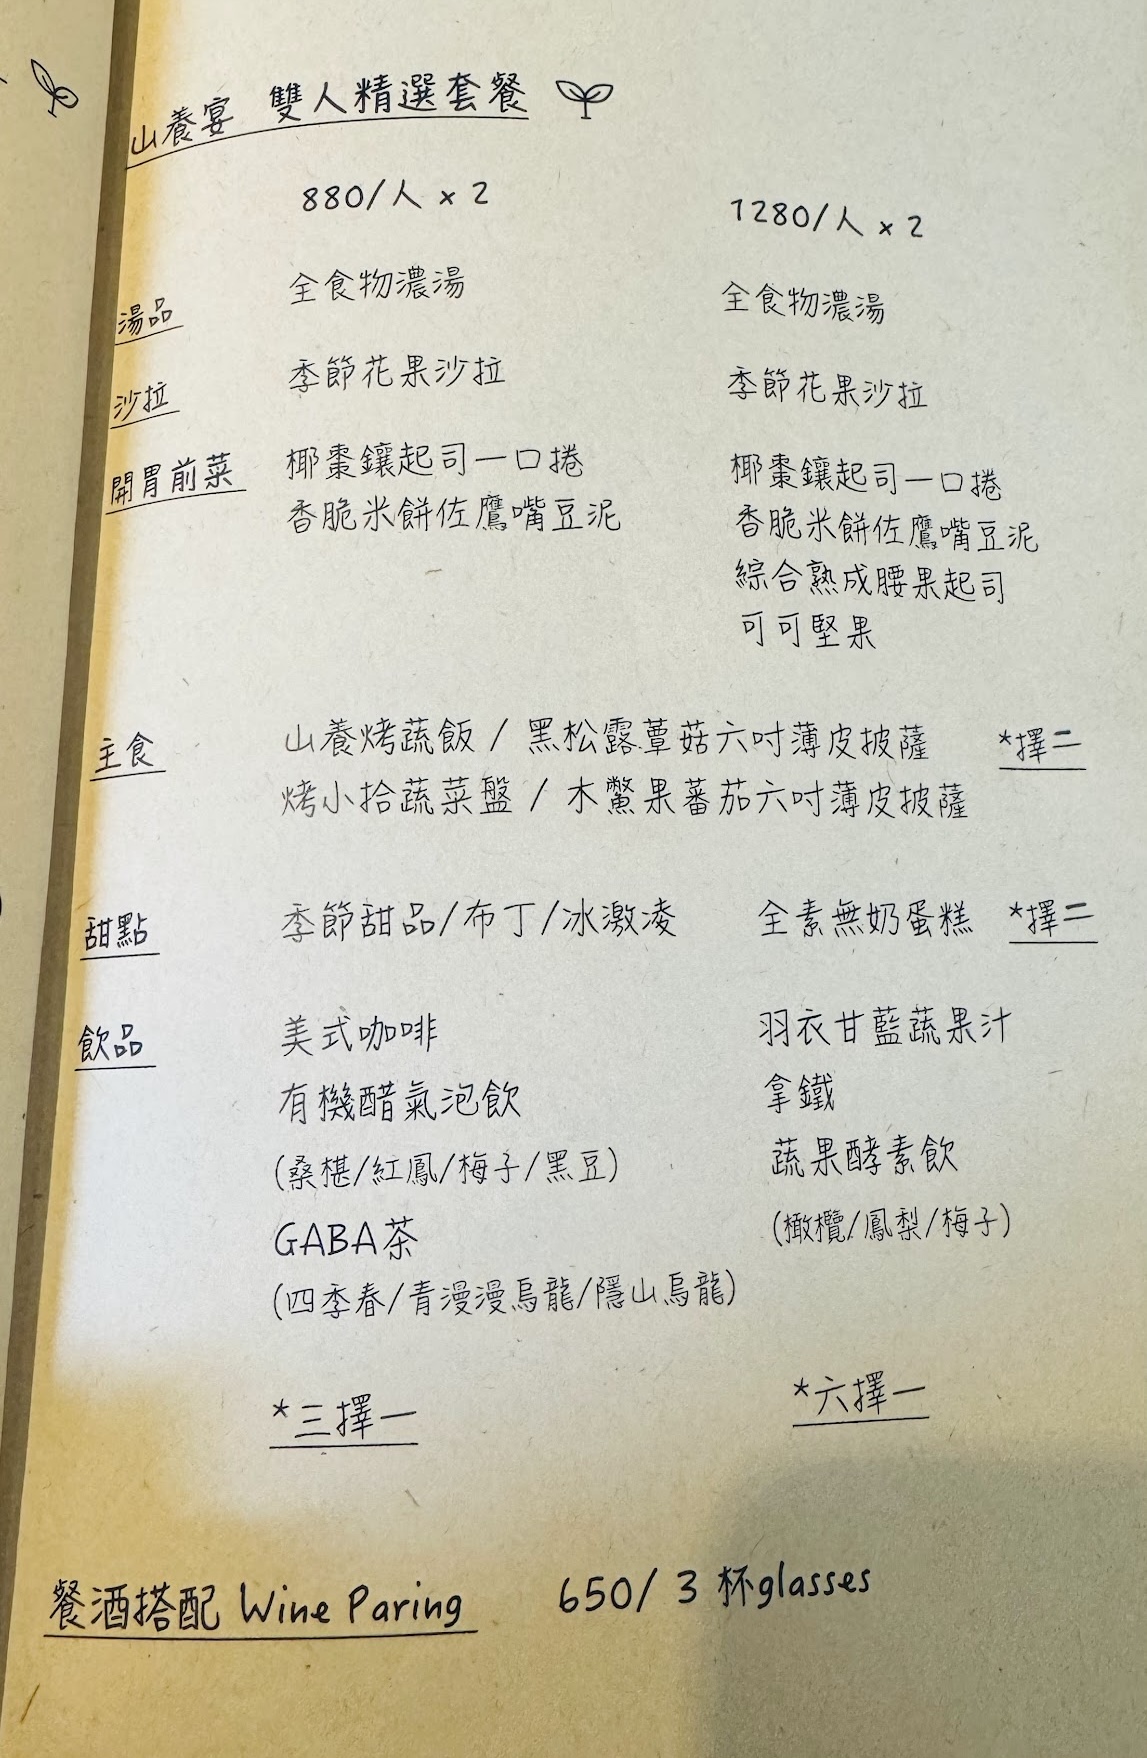 山養宴 雙人精選套餐
880/人 x 2 1280/人 x 2
湯品 全食物濃湯 全食物濃湯
沙拉 季節花果沙拉 季節花果沙拉
開胃前菜 椰棗鑲起司一口捲 椰棗鑲起司一口捲
香脆米餅佐鷹嘴豆泥 香脆米餅佐鷹嘴豆泥
綜合熟成腰果起司
可可堅果
主食 山養烤蔬飯 / 黑松露蕈菇六吋薄皮披薩 *擇二
烤小拾蔬菜盤 / 木鱉果蕃茄六吋薄皮披薩
甜點 季節甜品/布丁/冰激凌 全素無奶蛋糕 *擇二
飲品 美式咖啡 羽衣甘藍蔬果汁
有機醋氣泡飲 拿鐵
(桑椹/紅鳳/梅子/黑豆) 蔬果酵素飲
GABA茶 (橄欖/鳳梨/梅子)
(四季春/青漫漫烏龍/隱山烏龍)
*三擇一 *六擇一
餐酒搭配 Wine Paring 650/ 3 杯glasses